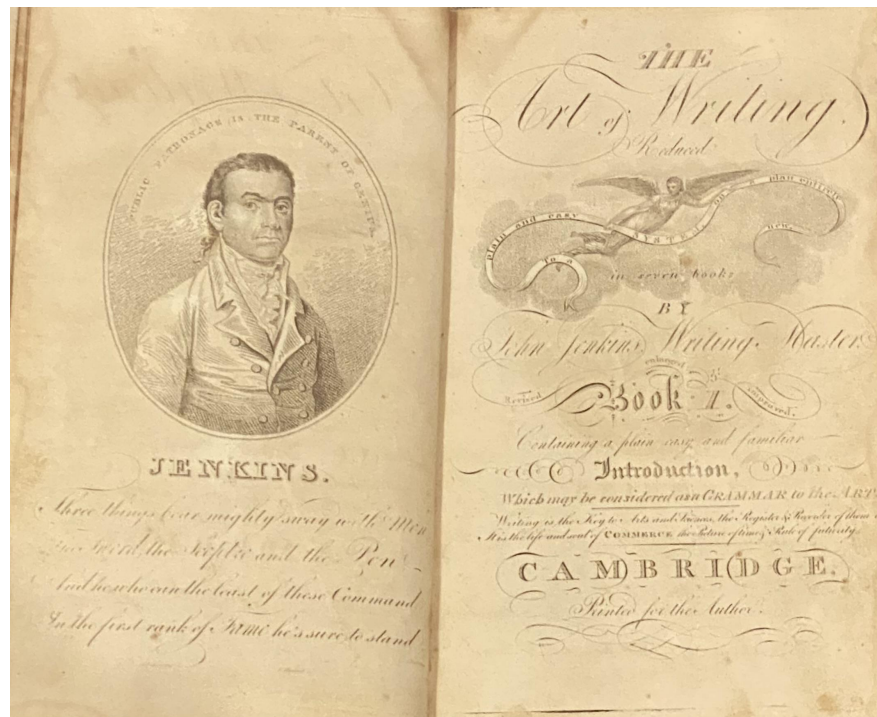 PUBLIC PATRONAGE IS THE PARENT OF GENIUS
JENKINS.
Three things bear mighty sway with Men
The Sword, the Sceptre and the Pen
And he who can the least of these Command
In the first rank of Fame he's sure to stand
THE
Art of Writing.
Reduced
to a
plain and easy
SYSTEM,
on a plan entirely
new.
in seven books:
BY
John Jenkins, Writing Master.
Revised enlarged & improved.
Book I.
Containing a plain easy and familiar
Introduction,
Which may be considered as a GRAMMAR to the ART.
Writing is the Key to Arts and Sciences, the Register & Recorder of them
It is the life and soul of COMMERCE the Picture of time, & Rule of futurity.
CAMBRIDGE.
Printed for the Author.